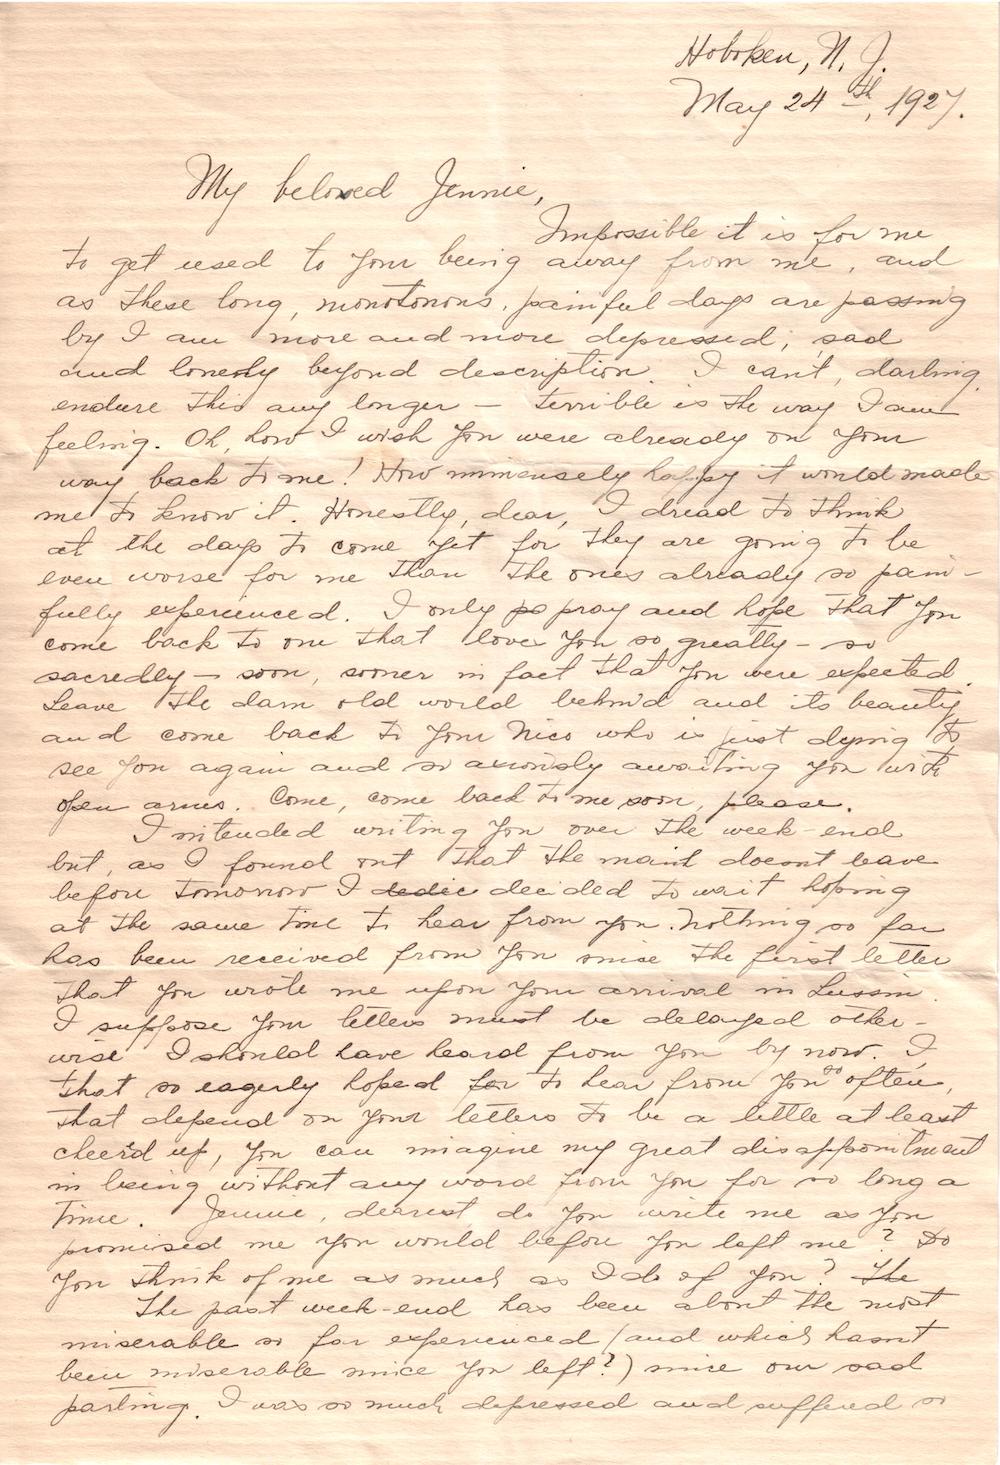 Hoboken, N. J.
May 24th, 1927.
My beloved Jennie,
Impossible it is for me
to get used to your being away from me, and
as these long, monotonous, painful days are passing
by I am more and more depressed, sad
and lonely beyond description. I can't, darling,
endure this any longer — terrible is the way I am
feeling. Oh, how I wish you were already on your
way back to me! How immensely happy it would made
me to know it. Honestly, dear, I dread to think
at the days to come yet for they are going to be
even worse for me than the ones already so pain-
fully experienced. I only po pray and hope that you
come back to one that loves you so greatly — so
sacredly — soon, sooner in fact that you were expected.
Leave the darn old world behind and its beauty
and come back to your Nico who is just dying to
see you again and so axiously awaiting you with
open arms. Come, come back to me soon, please.
I intended writing you over the week-end
but, as I found out that the mail doesnt leave
before tomorrow I dedic decided to wait hoping
at the same time to hear from you. Nothing so far
has been received from you since the first letter
that you wrote me upon your arrival in Lussin.
I suppose your letters must be delayed other-
wise I should have heard from you by now. I
that so eagerly hoped for to hear from you so often,
that depend on your letters to be a little at least
cheer'd up, you can imagine my great disappointment
in being without any word from you for so long a
time. Jennie, dearest, do you write me as you
promised me you would before you left me? Do
you think of me as much as I do of you? The
The past week-end has been about the most
miserable so far experienced (and which hasnt
been miserable since you left?) since our sad
parting. I was so much depressed and suffered so